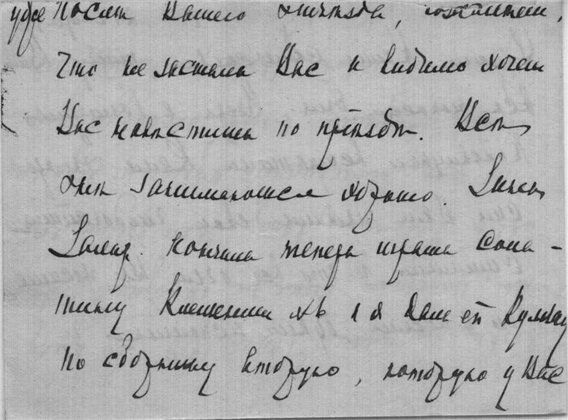 уже после Вашего отъезда,
что не застала Вас и видимо хочет
Вас навестить по приезде. Все
они занимаются хорошо.
кончила теперь играть Сона-
тину Клементи № 1 я дам ей Кулау
по сборнику вторую, которую у Вас